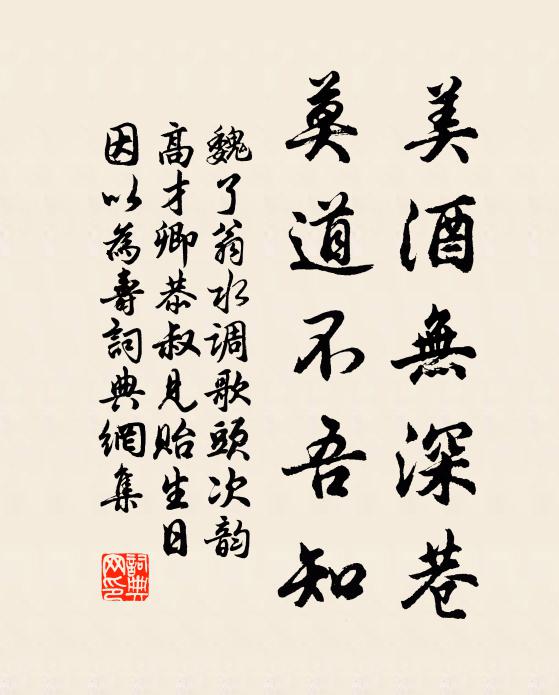 美酒無深巷
莫道不吾知
魏了翁水调歌頭次韵
高才卿恭叔見貽生日
因以為壽詞典網集
詞典网印